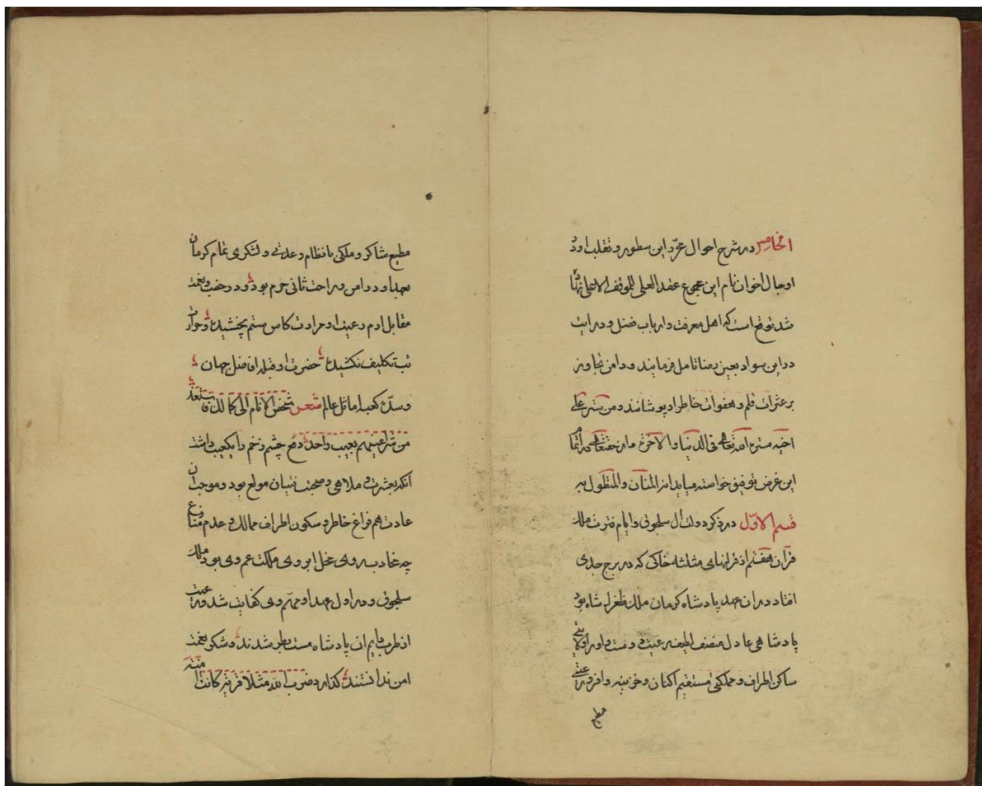 الخامس در شرح احوال محرّر این سطور و تقلب ادوار
او حال اخوان نام این مجموع عقد العلی للموقف الاعلی نهاده
شد توقع است که اهل معرفت و ارباب فضل و درایت
در این سواد بعین رضا تامل فرمایند و دامن تجاوز
بر عثرات قلم و هفوات خاطر او پوشانند و من ستر علی
اخیه ستره الله تعالی فی الدنیا والآخرة مارن حضعالی در اتمام
این غرض توفیق خواسته میاید انه المنان والمتطول به
قسم الاوّل در ذکر دولت آل سلجوق و ایام فترت ملک
قران هفتم از قرانهای مثلثه خاکی که در برج جدی
افتاد در ان عهد پادشاه کرمان ملک طغرل شاه بود
پادشاهی عادل منصف لطیف رعیت دوست و او را ولایتی
ساکن اطراف و مملکتی مستقیم اکناف و خزینه وافر و رعیتی
مطیع
مطیع شاکر و ملکی با نظام و عدتی و لشکری تمام کرمان
بعهد او در امن و راحت ثانی حرم بود و در خصب و نعمت
مقابل ارم رعیت او مرارت کاس ستم نچشیده و حوادث
تب تکلیف نکشیده حضرت او قبله افاضل جهان
و سدّه کعبه اماثل عالم شعر شخص الانام الی کمالک فاستعذ
من شر اعینهم بعیب واحد دفع چشم زخم را یکعیب داشت
انکه بعشرت و ملاهی و صحبت نسیان مولع بود و موجب ان
عادت هم فراغ خاطر و سکون اطراف ممالک و عدم منازع
چه عادت به روی محل ابروی مملکت عم وی بود ملک
سلجوق و در اول عهد او مهم وی کفایت شد و رعیت
از طرب ایام ان پادشاه مست بطر شدند و شکر نعمت
امن ندانستند کذلک ضرب الله مثلا قریة کانت امنة